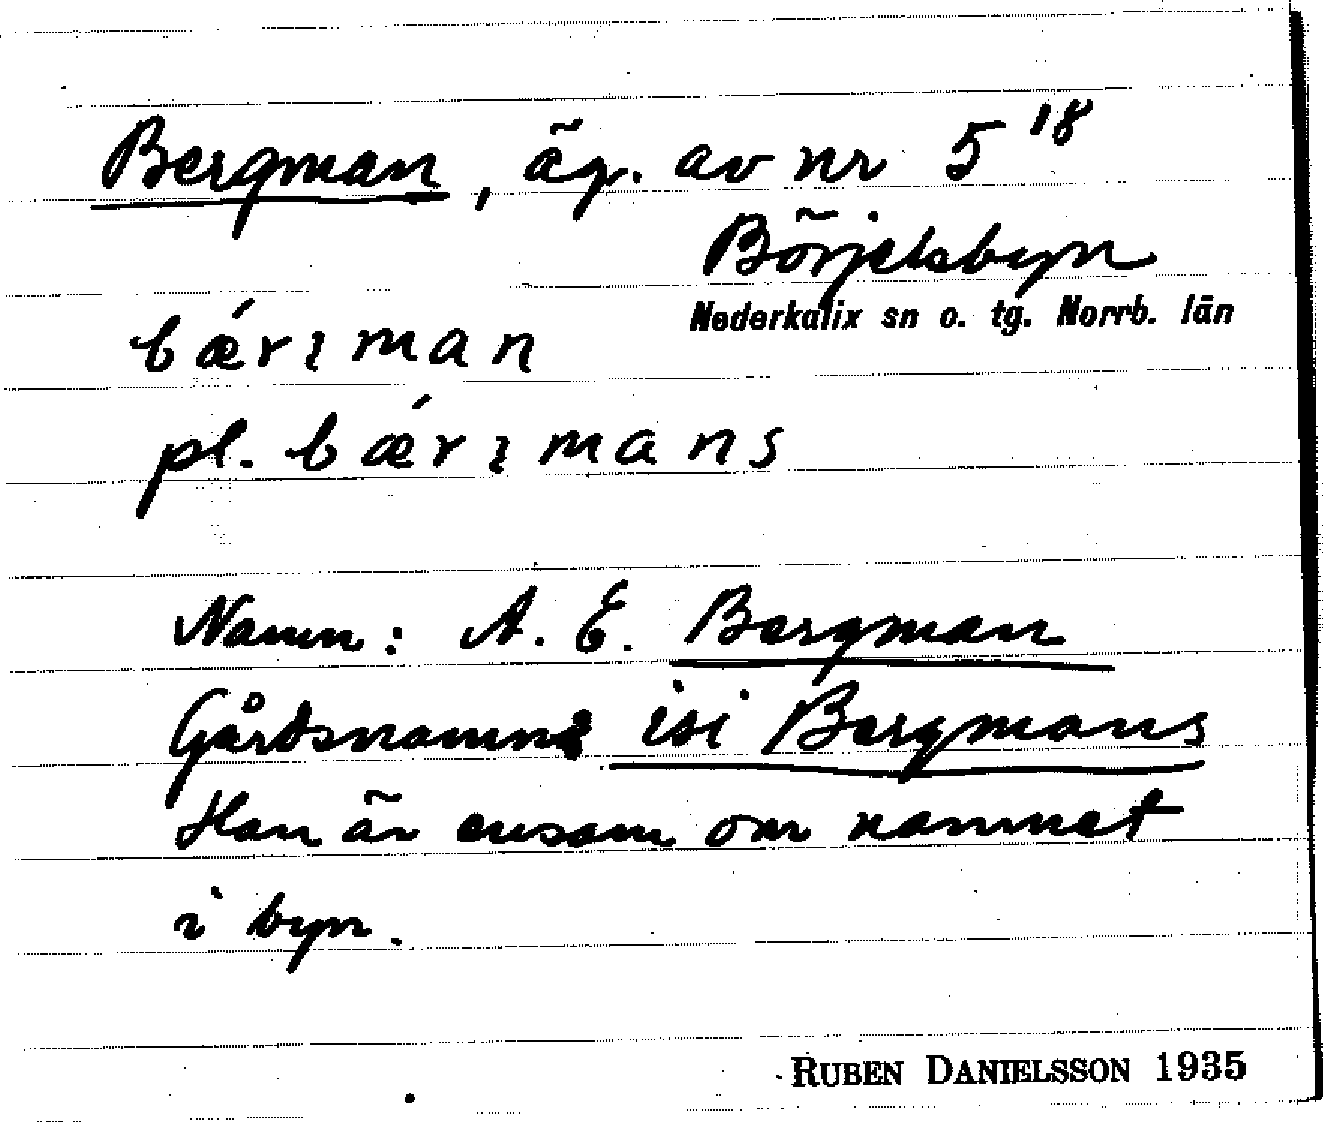 Bergman, äg. av nr 5 18
Börjelsbyn
Nederkalix sn o. tg. Norrb. län
bǽrɿman
pl. bǽrɿmans
Namn: A. E. Bergman
Gårdsnamn: isi Bergmans
Han är ensam om namnet
i byn.
RUBEN DANIELSSON 1935